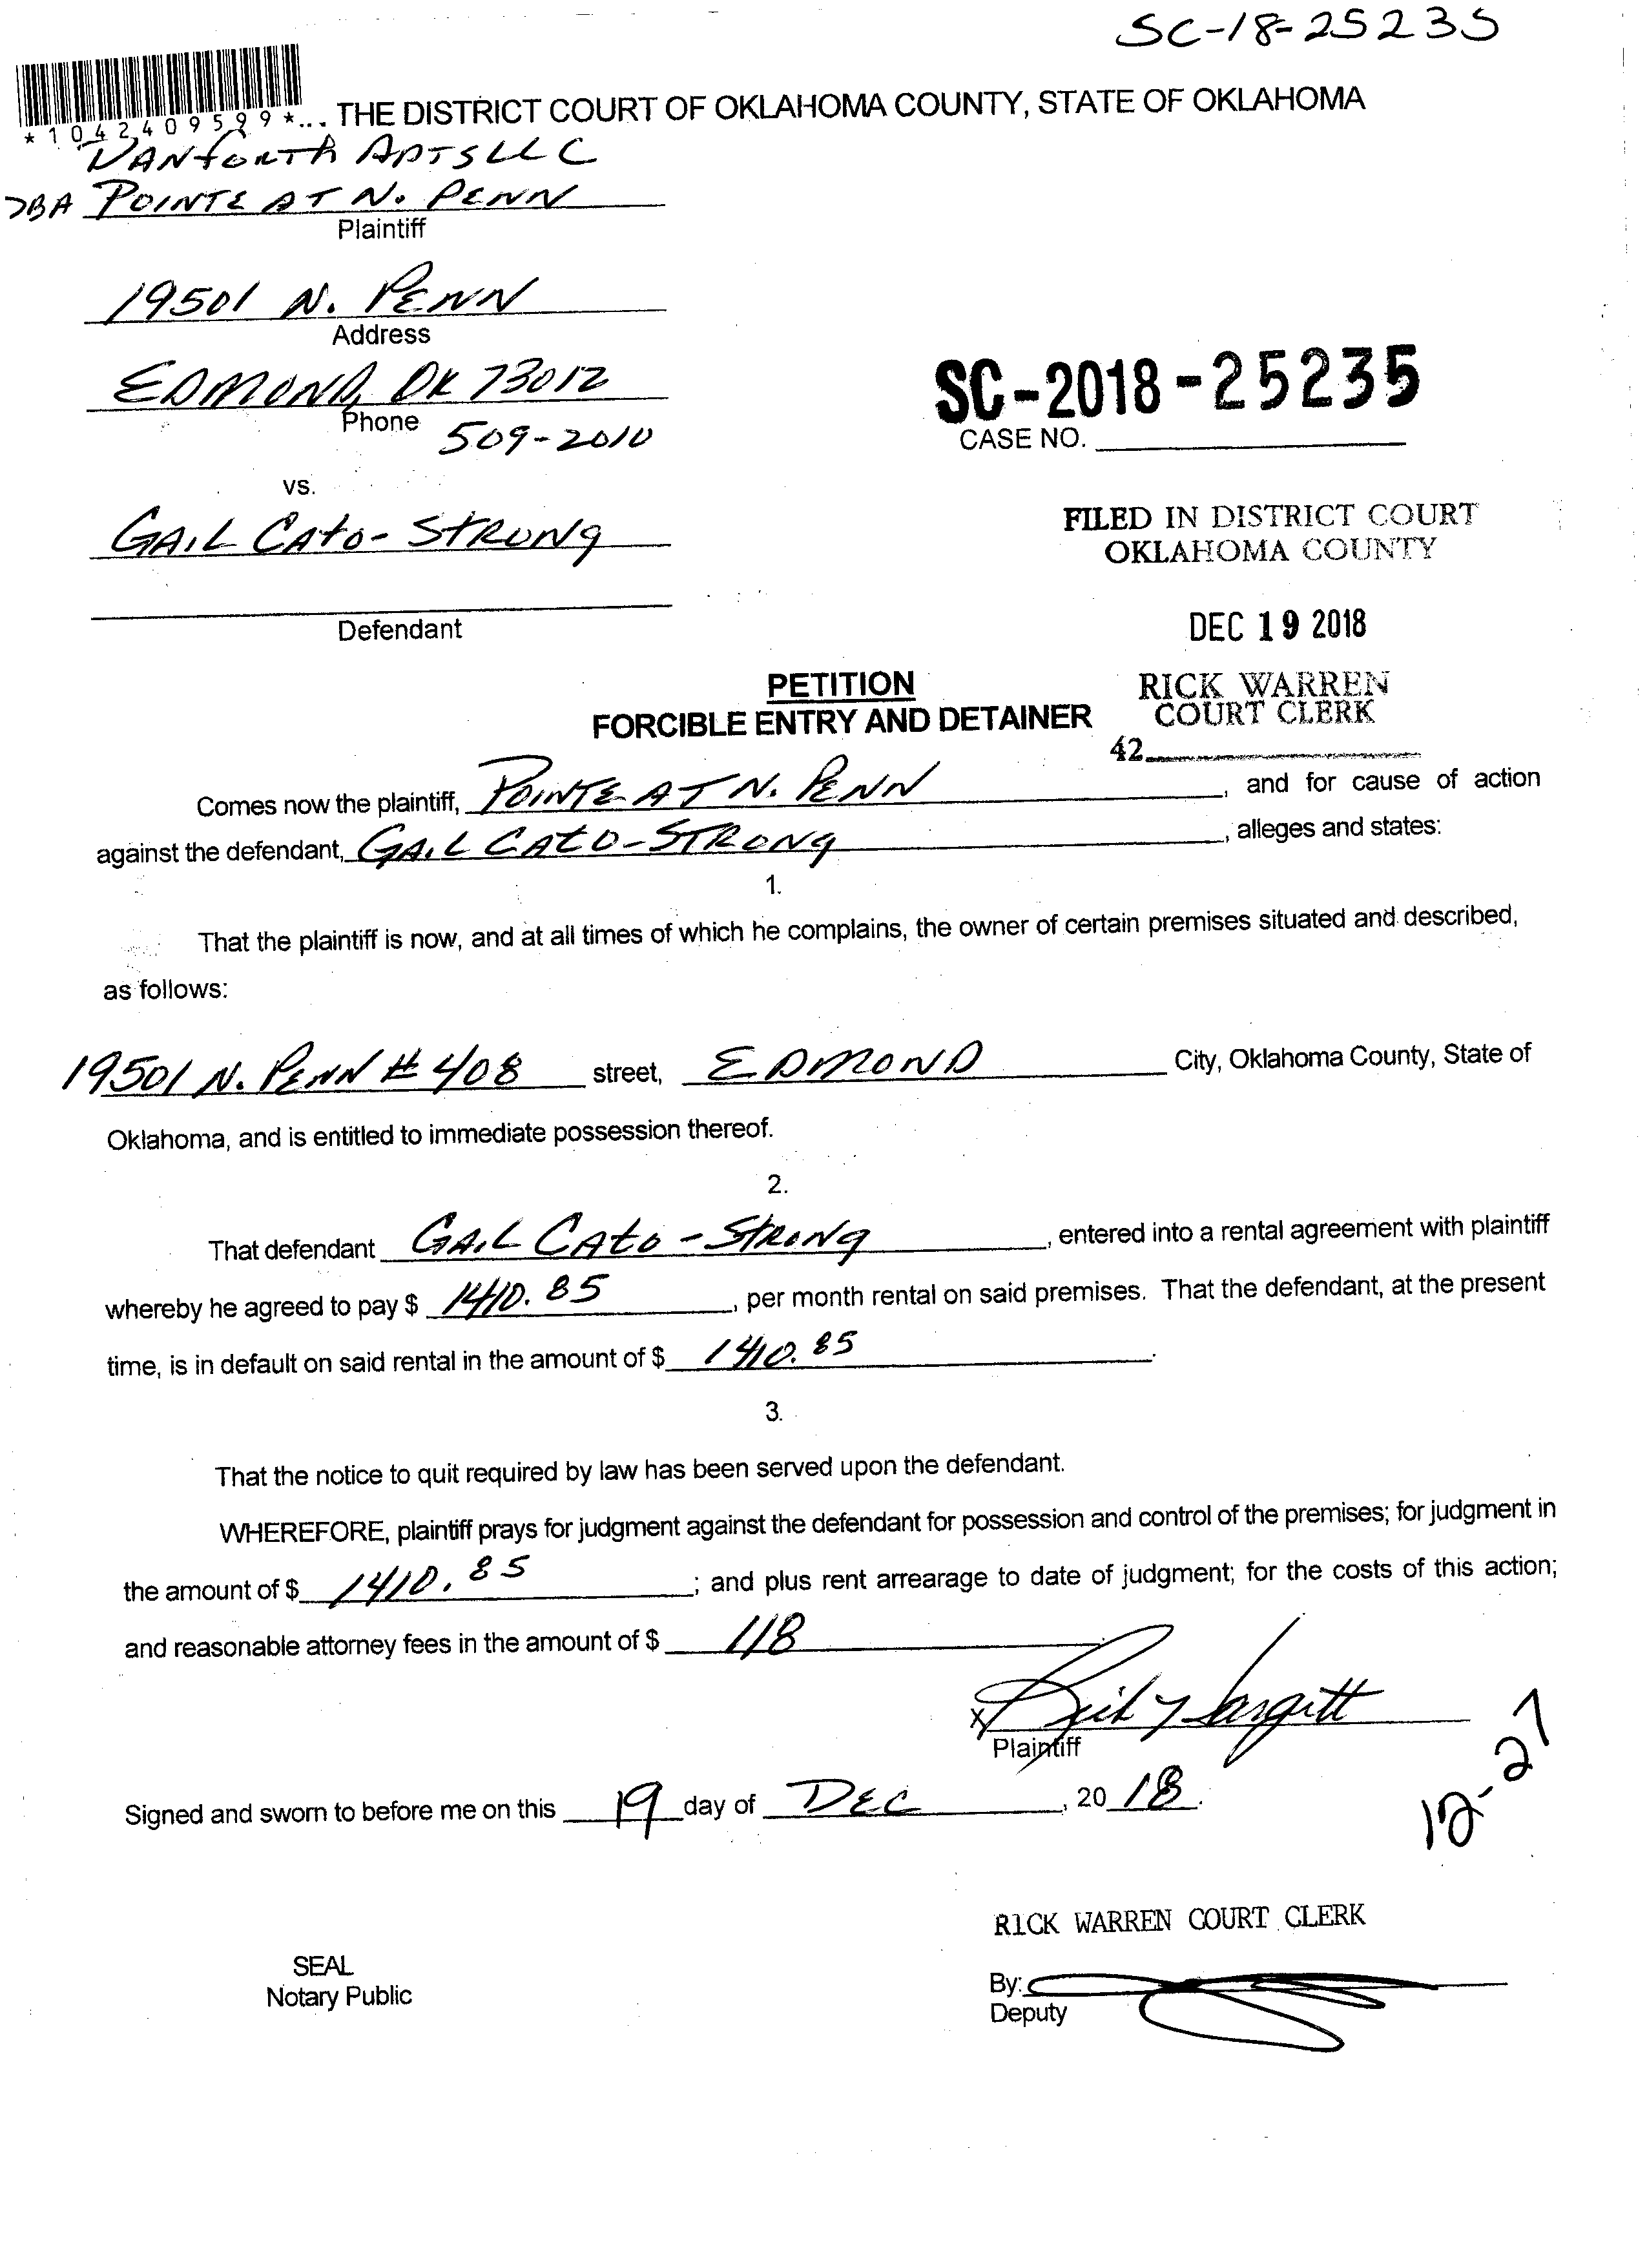 SC-18-25235
*1042409599*... THE DISTRICT COURT OF OKLAHOMA COUNTY, STATE OF OKLAHOMA
APTS LLC
DBA POINTE AT N. PENN
Plaintiff
19501 N. PENN
Address
EDMOND, OK 73012
Phone 509-2010
SC-2018-25235
CASE NO.
vs.
GAIL CATO-STRONG
Defendant
FILED IN DISTRICT COURT
OKLAHOMA COUNTY
DEC 19 2018
RICK WARREN
COURT CLERK
42
PETITION
FORCIBLE ENTRY AND DETAINER
Comes now the plaintiff, POINTE AT N. PENN, and for cause of action
against the defendant, GAIL CATO-STRONG, alleges and states:
1.
That the plaintiff is now, and at all times of which he complains, the owner of certain premises situated and described,
as follows:
19501 N. PENN # 408 street, EDMOND City, Oklahoma County, State of
Oklahoma, and is entitled to immediate possession thereof.
2.
That defendant GAIL CATO-STRONG, entered into a rental agreement with plaintiff
whereby he agreed to pay $ 1410.85, per month rental on said premises. That the defendant, at the present
time, is in default on said rental in the amount of $ 1410.85.
3.
That the notice to quit required by law has been served upon the defendant.
WHEREFORE, plaintiff prays for judgment against the defendant for possession and control of the premises; for judgment in
the amount of $ 1410.85; and plus rent arrearage to date of judgment; for the costs of this action;
and reasonable attorney fees in the amount of $ 118
X
Plaintiff
Signed and sworn to before me on this 19 day of DEC, 20 18.
12-27
RICK WARREN COURT CLERK
SEAL
Notary Public
By:
Deputy